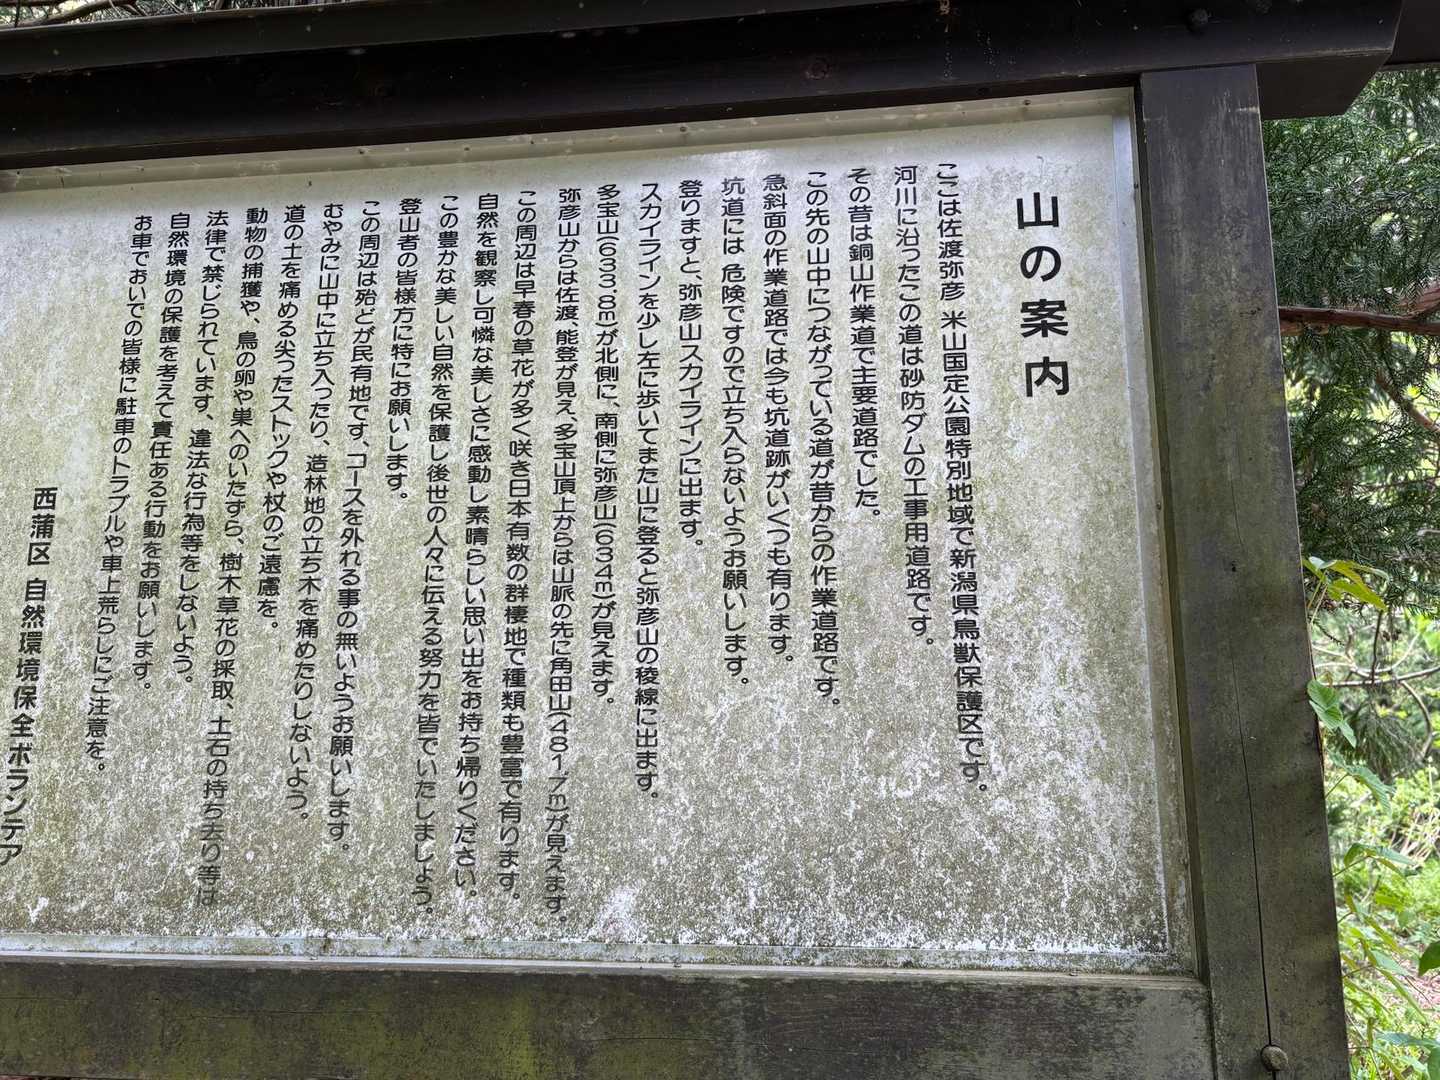 山の案内
ここは佐渡弥彦 米山国定公園特別地域で新潟県鳥獣保護区です。
河川に沿ったこの道は砂防ダムの工事用道路です。
その昔は銅山作業道で主要道路でした。
この先の山中につながっている道が昔からの作業道路です。
急斜面の作業道路では今も坑道跡がいくつも有ります。
坑道には 危険ですので立ち入らないようお願いします。
登りますと、弥彦山スカイラインに出ます。
スカイラインを少し左に歩いてまた山に登ると弥彦山の稜線に出ます。
多宝山(633.8m)が北側に、南側に弥彦山(634m)が見えます。
弥彦山からは佐渡、能登が見え、多宝山頂上からは山脈の先に角田山(481.7m)が見えます。
この周辺は早春の草花が多く咲き日本有数の群棲地で種類も豊富で有ります。
自然を観察し可憐な美しさに感動し素晴らしい思い出をお持ち帰りください。
この豊かな美しい自然を保護し後世の人々に伝える努力を皆でいたしましょう。
登山者の皆様方に特にお願いします。
この周辺は殆どが民有地です、コースを外れる事の無いようお願いします。
むやみに山中に立ち入ったり、造林地の立ち木を痛めたりしないよう。
道の土を痛める尖ったストックや杖のご遠慮を。
動物の捕獲や、鳥の卵や巣へのいたずら、樹木草花の採取、土石の持ち去り等は
法律で禁じられています、違法な行為等をしないよう。
自然環境の保護を考えて責任ある行動をお願いします。
お車でおいでの皆様に駐車のトラブルや車上荒らしにご注意を。
西蒲区 自然環境保全ボランテア